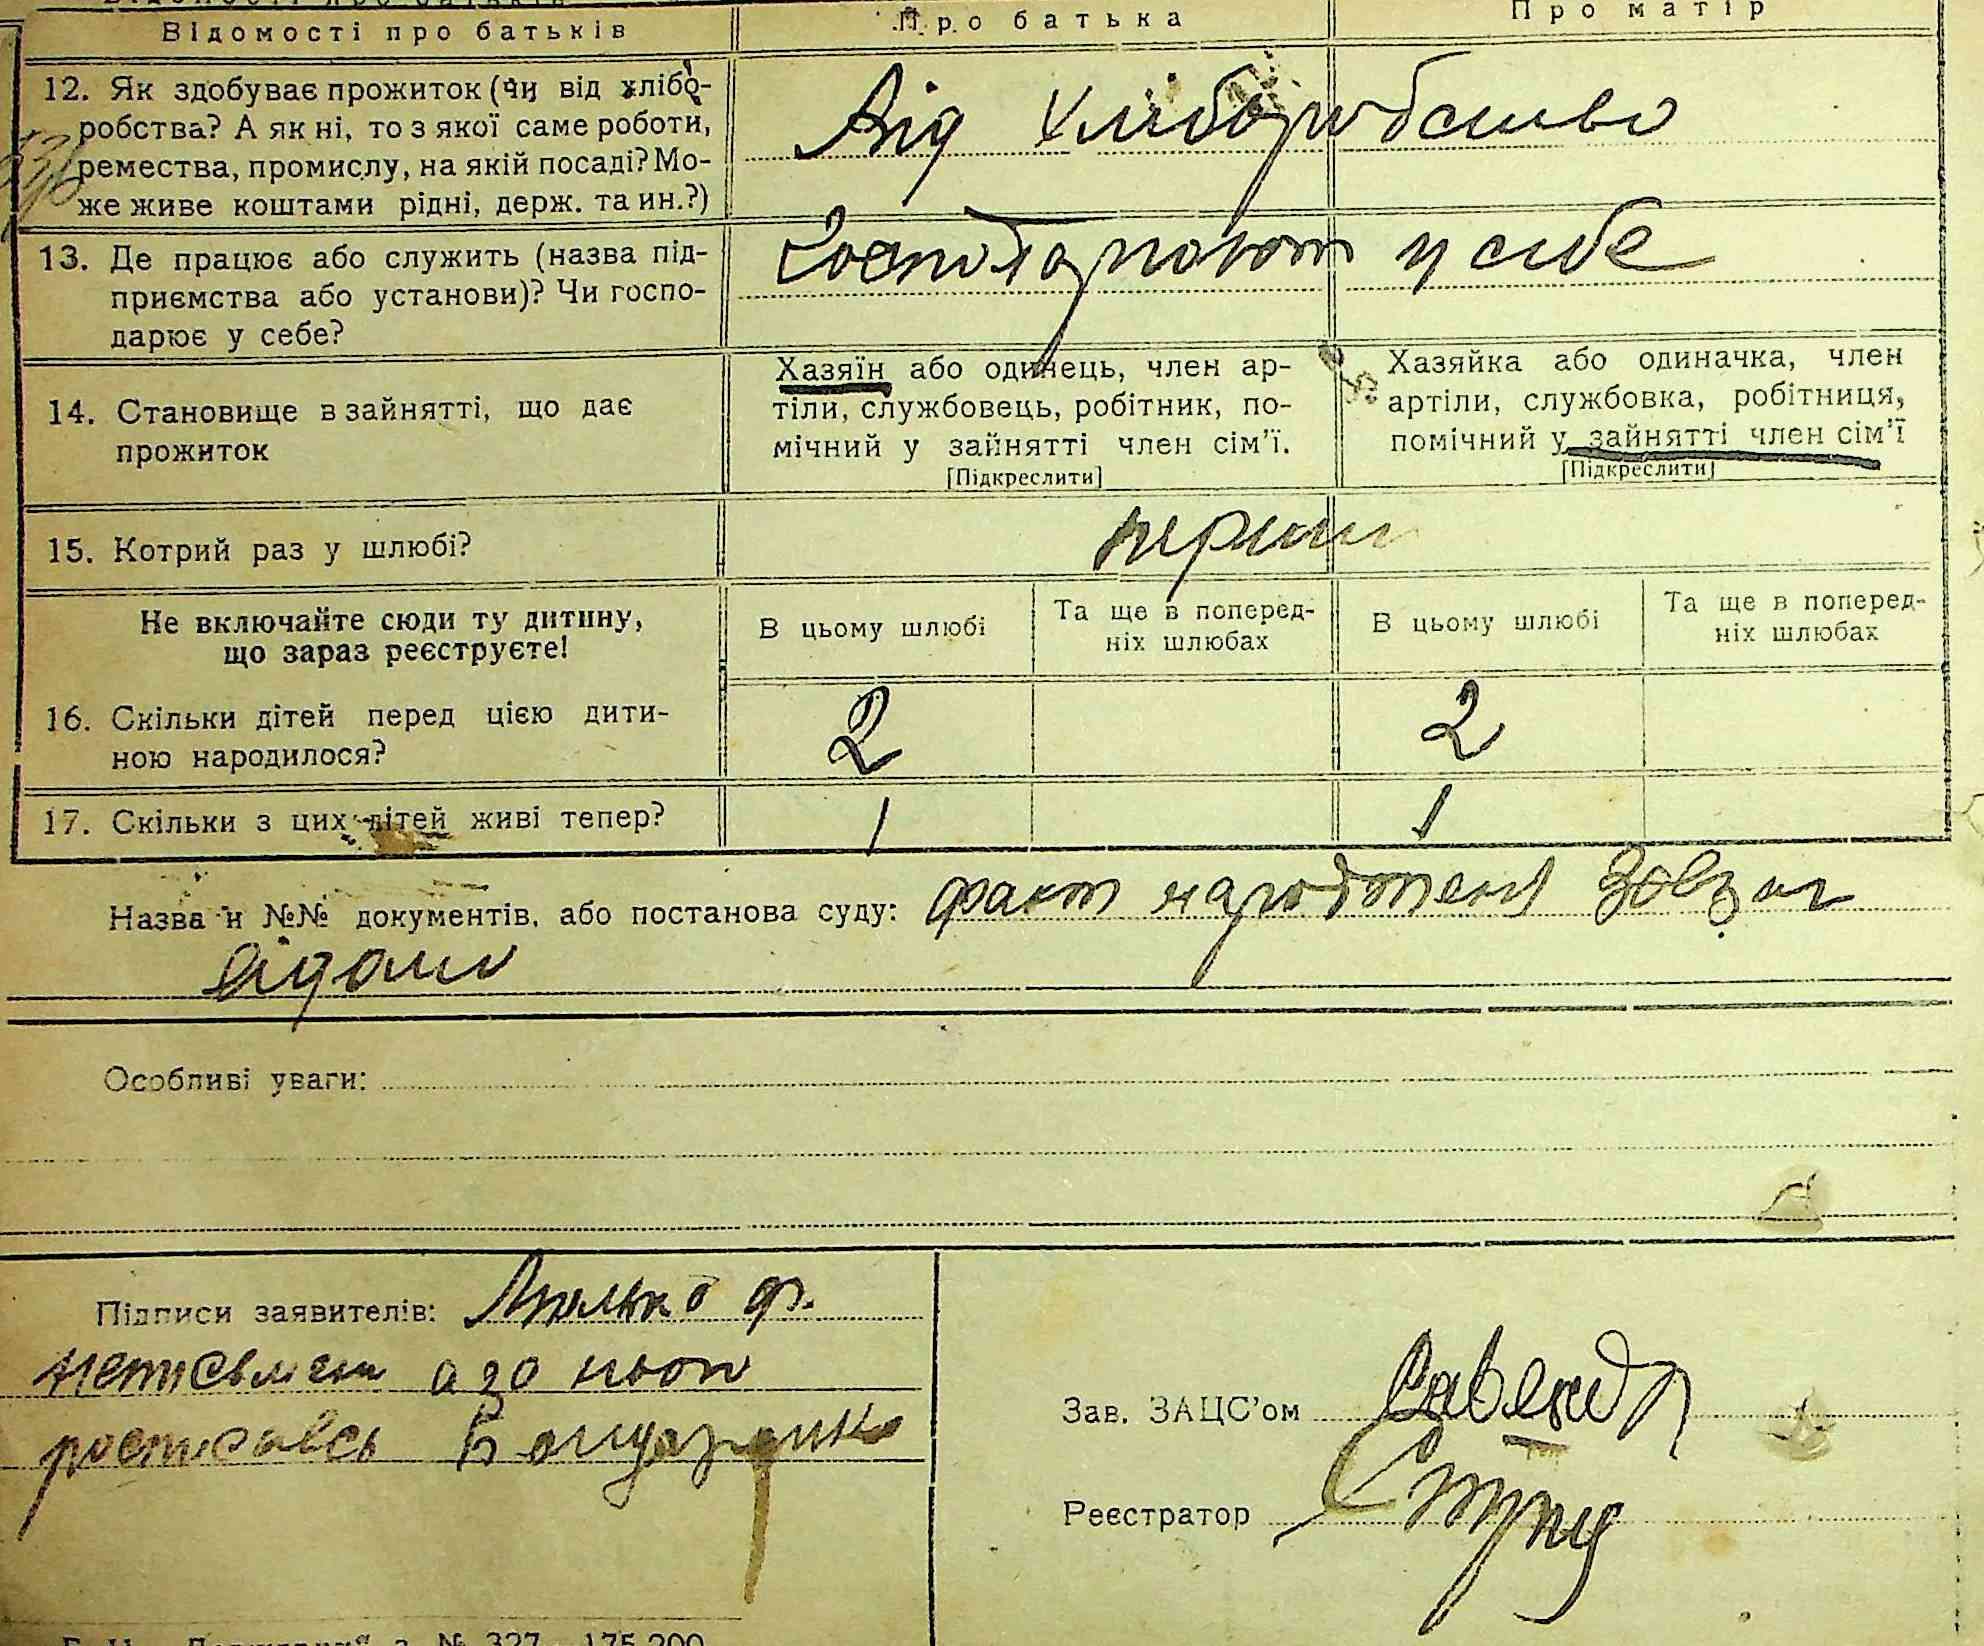 Відомості про батьків
Відомості про батьків Про батька Про матір
12. Як здобуває прожиток (чи від хлібо- Від хліборобство
робства? А як ні, то з якої саме роботи,
ремества, промислу, на якій посаді? Мо-
же живе коштами рідні, держ. та ин.?)
13. Де працює або служить (назва під- Господарюют у себе
приємства або установи)? Чи госпо-
дарює у себе?
14. Становище в зайнятті, що дає
прожиток
Хазяїн або одинець, член ар-
тіли, службовець, робітник, по-
мічний у зайнятті член сім'ї.
[Підкреслити]
Хазяйка або одиначка, член
артіли, службовка, робітниця,
помічний у зайнятті член сім'ї
[Підкреслити]
15. Котрий раз у шлюбі? перши
Не включайте сюди ту дитину,
що зараз реєструєте!
В цьому шлюбі
Та ще в поперед-
ніх шлюбах
В цьому шлюбі
Та ще в поперед-
ніх шлюбах
16. Скільки дітей перед цією дити- 2 2
ною народилося?
17. Скільки з цих дітей живі тепер? 1 1
Назва и №№ документів, або постанова суду: факт народженя
відоми
Особливі уваги:
Підписи заявителів: ф.
неписьмени а за ньои
росписавсь Бондаренко
Зав. ЗАЦС'ом
Реєстратор
№ 327 - 175.200